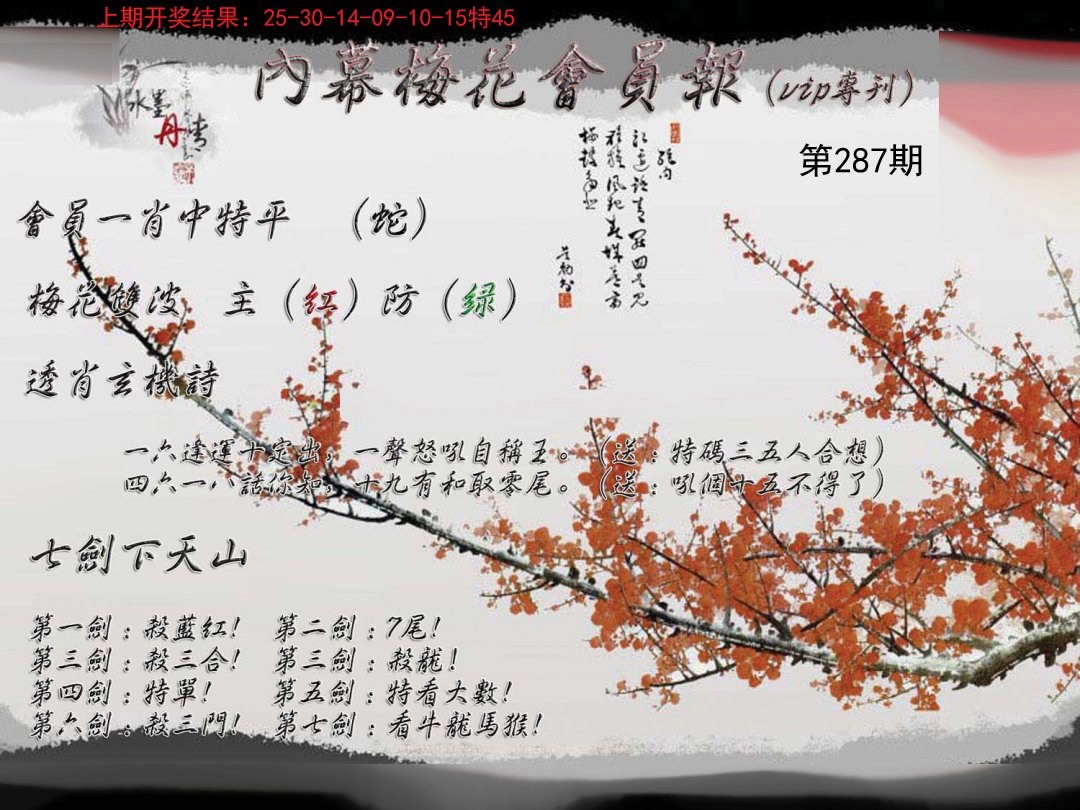 上期开奖结果：25-30-14-09-10-15特45
內幕梅花會員報（vip專刊）
水墨
丹青
第287期
會員一肖中特平 （蛇）
梅花雙波 主（红）防（绿）
透肖玄機詩
一六逢運十定出，一聲怒吼自稱王。（送：特碼三五人合想）
四六一八話你知，十九有和取零尾。（送：吼個十五不得了）
七劍下天山
第一劍：殺藍紅！ 第二劍：7尾！
第三劍：殺三合！ 第三劍：殺龍！
第四劍：特單！ 第五劍：特看大數！
第六劍：殺三門！ 第七劍：看牛龍馬猴！